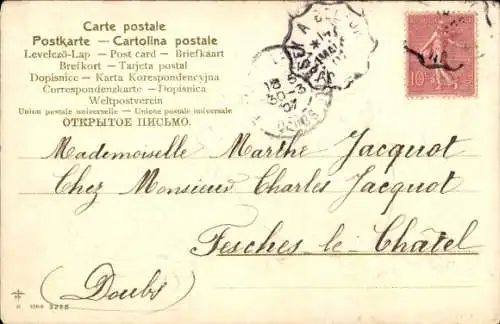 Carte postale
Postkarte — Cartolina postale
Levelező-Lap — Post card — Briefkaart
Brefkort — Tarjeta postal
Dopisnice — Karta Korespondencyjna
Correspondenzkarte — Dopisnica
Weltpostverein
Union postale universelle — Unione postale universale
ОТКРЫТОЕ ПИСЬМО.
10
DOUBS
Mademoiselle Marthe Jacquot
Chez Monsieur Charles Jacquot
Fesches le Châtel
(Doubs)